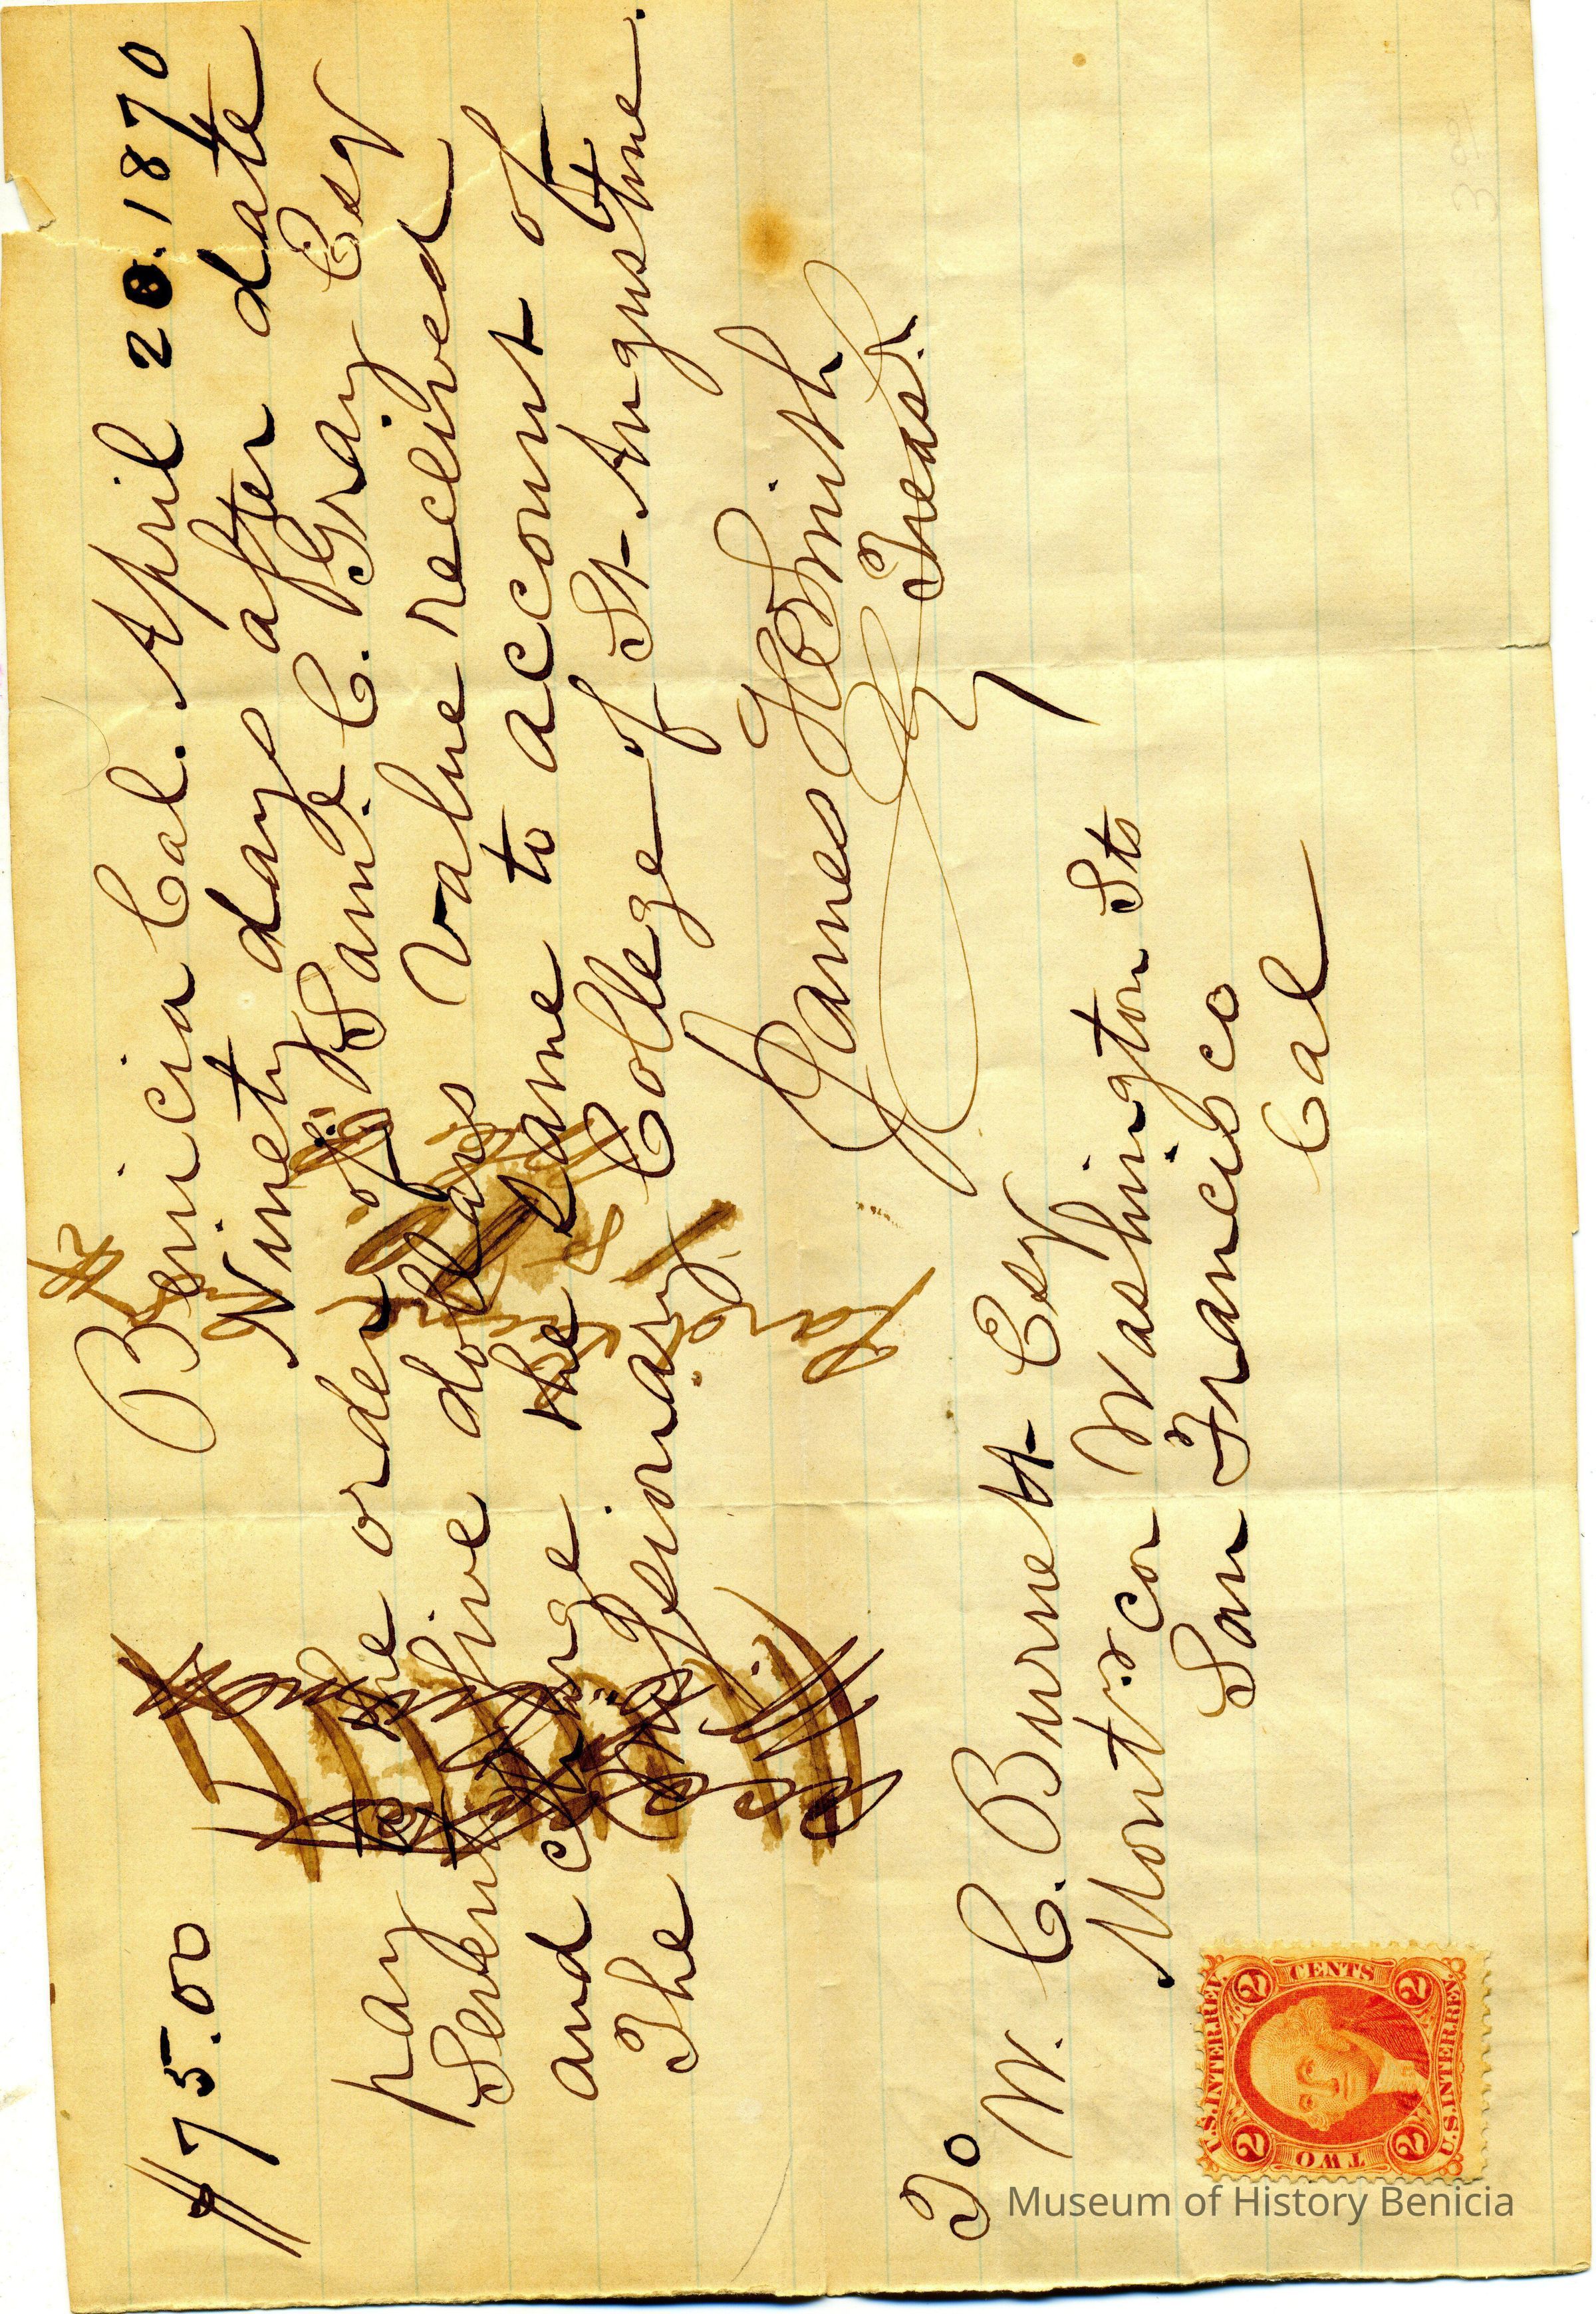 $75.00 Benicia Cal. April 20. 1870
Ninety days after date
pay the order of Saml. C. Gray Esq
Seventy five dollars Value received
and charge the same to account of
The Missionary College of St. Augustine.
James E Smith
Treas.
To
W. C. Burnett Esq
Mont. & cor Washington Sts
San Francisco
Cal
U.S. INTER. REV.
2 CENTS 2
2 TWO 2
U.S. INTER. REV.
Museum of History Benicia